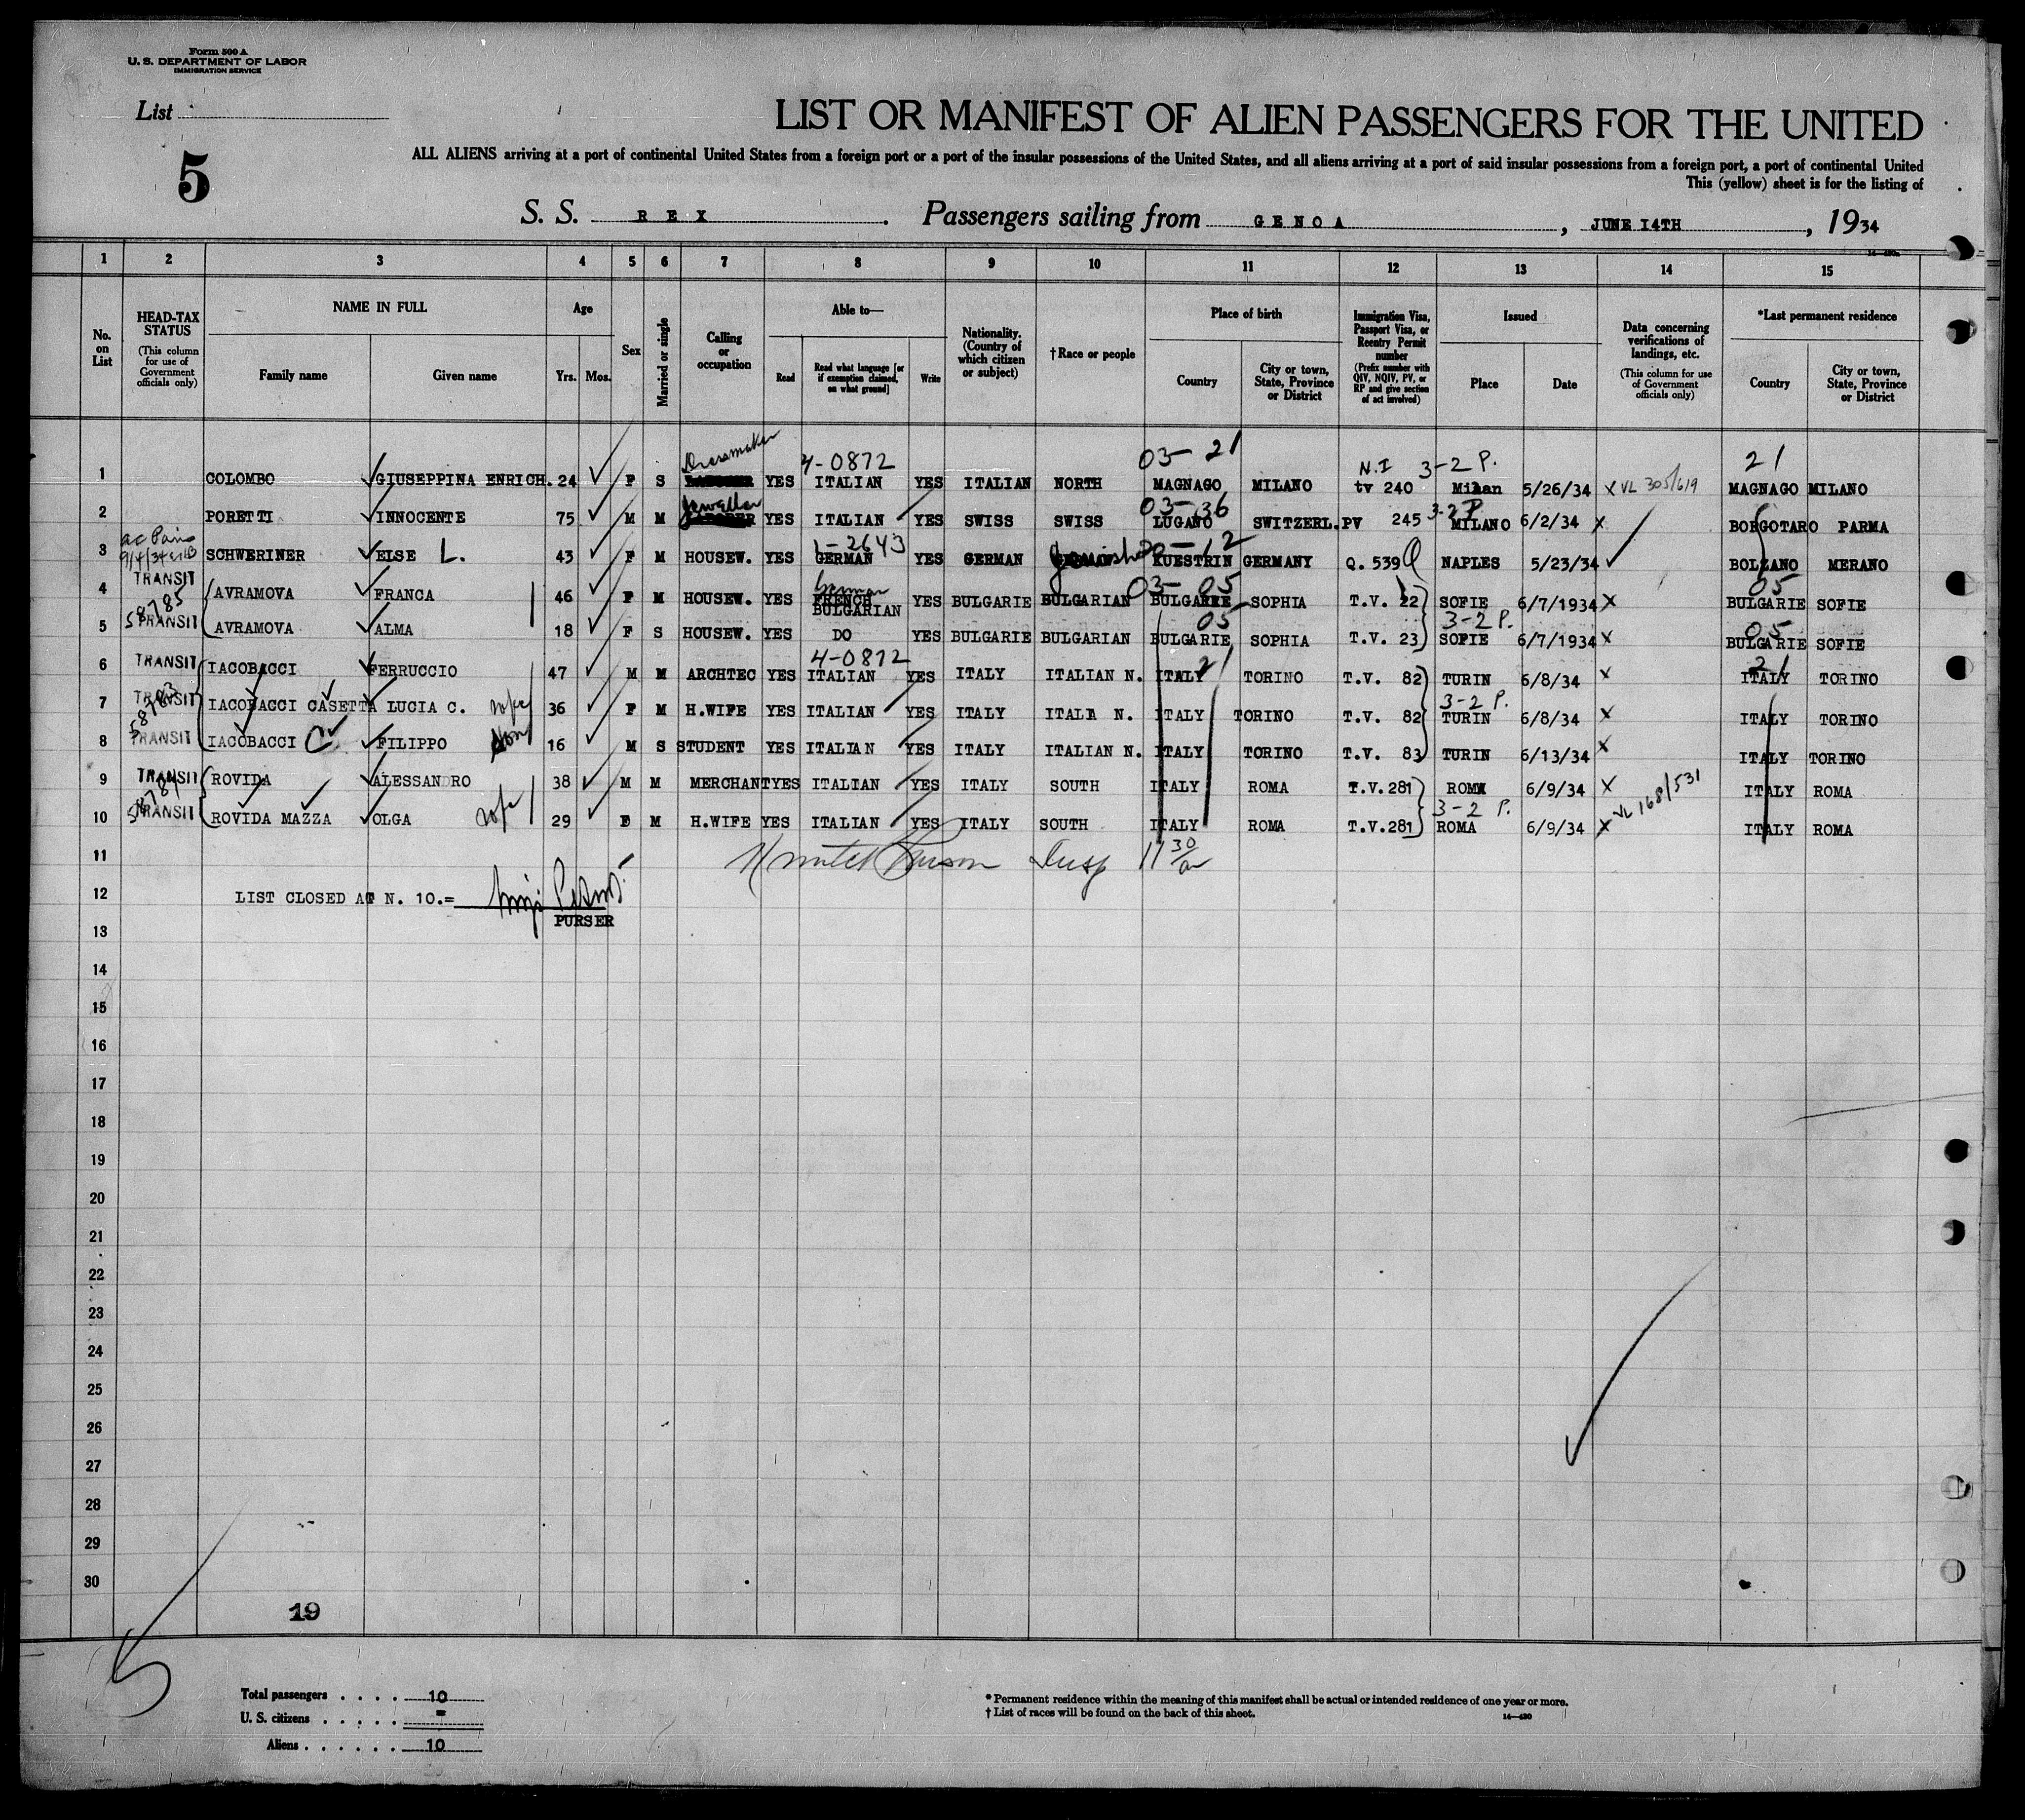 Form 500 A
U. S. DEPARTMENT OF LABOR
IMMIGRATION SERVICE
List
5
LIST OR MANIFEST OF ALIEN PASSENGERS FOR THE UNITED
ALL ALIENS arriving at a port of continental United States from a foreign port or a port of the insular possessions of the United States, and all aliens arriving at a port of said insular possessions from a foreign port, a port of continental United
This (yellow) sheet is for the listing of
S. S. REX. Passengers sailing from GENOA, JUNE 14TH, 1934
14—430a
1 2 3 4 5 6 7 8 9 10 11 12 13 14 15
No. on List
HEAD-TAX STATUS (This column for use of Government officials only)
NAME IN FULL
Family name Given name
Age
Yrs. Mos.
Sex
Married or single
Calling or occupation
Able to—
Read
Read what language [or if exemption claimed, on what ground]
Write
Nationality. (Country of which citizen or subject)
†Race or people
Place of birth
Country
City or town, State, Province or District
Immigration Visa, Passport Visa, or Reentry Permit number (Prefix number with QIV, NQIV, PV, or RP and give section of act involved)
Issued
Place Date
Data concerning verifications of landings, etc. (This column for use of Government officials only)
*Last permanent residence
Country
City or town, State, Province or District
Dressmaker 4-0872 03-21 N.I 3-2 P. 21
1 COLOMBO GIUSEPPINA ENRICH. 24 F S YES ITALIAN YES ITALIAN NORTH MAGNAGO MILANO tv 240 Milan 5/26/34 X VL 305/619 MAGNAGO MILANO
Jeweller 03-36 3-2 P
2 PORETTI INNOCENTE 75 M M YES ITALIAN YES SWISS SWISS LUGANO SWITZERL. PV 245 MILANO 6/2/34 X BORGOTARO PARMA
1-2643 -12
3 SCHWERINER ELSE L. 43 F M HOUSEW. YES GERMAN YES GERMAN Jewish KUESTRIN GERMANY Q. 539 NAPLES 5/23/34 BOLZANO MERANO
German 03-05 05
4 TRANSIT AVRAMOVA FRANCA 46 F M HOUSEW. YES FRENCH BULGARIAN YES BULGARIE BULGARIAN BULGARIE SOPHIA T.V. 22 SOFIE 6/7/1934 X BULGARIE SOFIE
58785 05 3-2 P. 05
5 TRANSIT AVRAMOVA ALMA 18 F S HOUSEW. YES DO YES BULGARIE BULGARIAN BULGARIE SOPHIA T.V. 23 SOFIE 6/7/1934 X BULGARIE SOFIE
4-0872 21 21
6 TRANSIT IACOBACCI FERRUCCIO 47 M M ARCHTEC YES ITALIAN YES ITALY ITALIAN N. ITALY TORINO T.V. 82 TURIN 6/8/34 X ITALY TORINO
58783 3-2 P.
7 TRANSIT IACOBACCI CASETTA LUCIA C. wife 36 F M H.WIFE YES ITALIAN YES ITALY ITALI N. ITALY TORINO T.V. 82 TURIN 6/8/34 X ITALY TORINO
8 TRANSIT IACOBACCI C FILIPPO son 16 M S STUDENT YES ITALIAN YES ITALY ITALIAN N. ITALY TORINO T.V. 83 TURIN 6/13/34 X ITALY TORINO
9 TRANSIT ROVIDA ALESSANDRO 38 M M MERCHANT YES ITALIAN YES ITALY SOUTH ITALY ROMA T.V. 281 ROMA 6/9/34 X ITALY ROMA
58784 3-2 P. VL 168/531
10 TRANSIT ROVIDA MAZZA OLGA wife 29 F M H.WIFE YES ITALIAN YES ITALY SOUTH ITALY ROMA T.V.281 ROMA 6/9/34 X ITALY ROMA
11 Insp 11 30/am
12 LIST CLOSED AT N. 10.=
PURSER
13
14
15
16
17
18
19
20
21
22
23
24
25
26
27
28
29
30
19
Total passengers . . . . 10
U. S. citizens . . . . . =
Aliens . . . . . . 10
* Permanent residence within the meaning of this manifest shall be actual or intended residence of one year or more.
† List of races will be found on the back of this sheet.
14—430